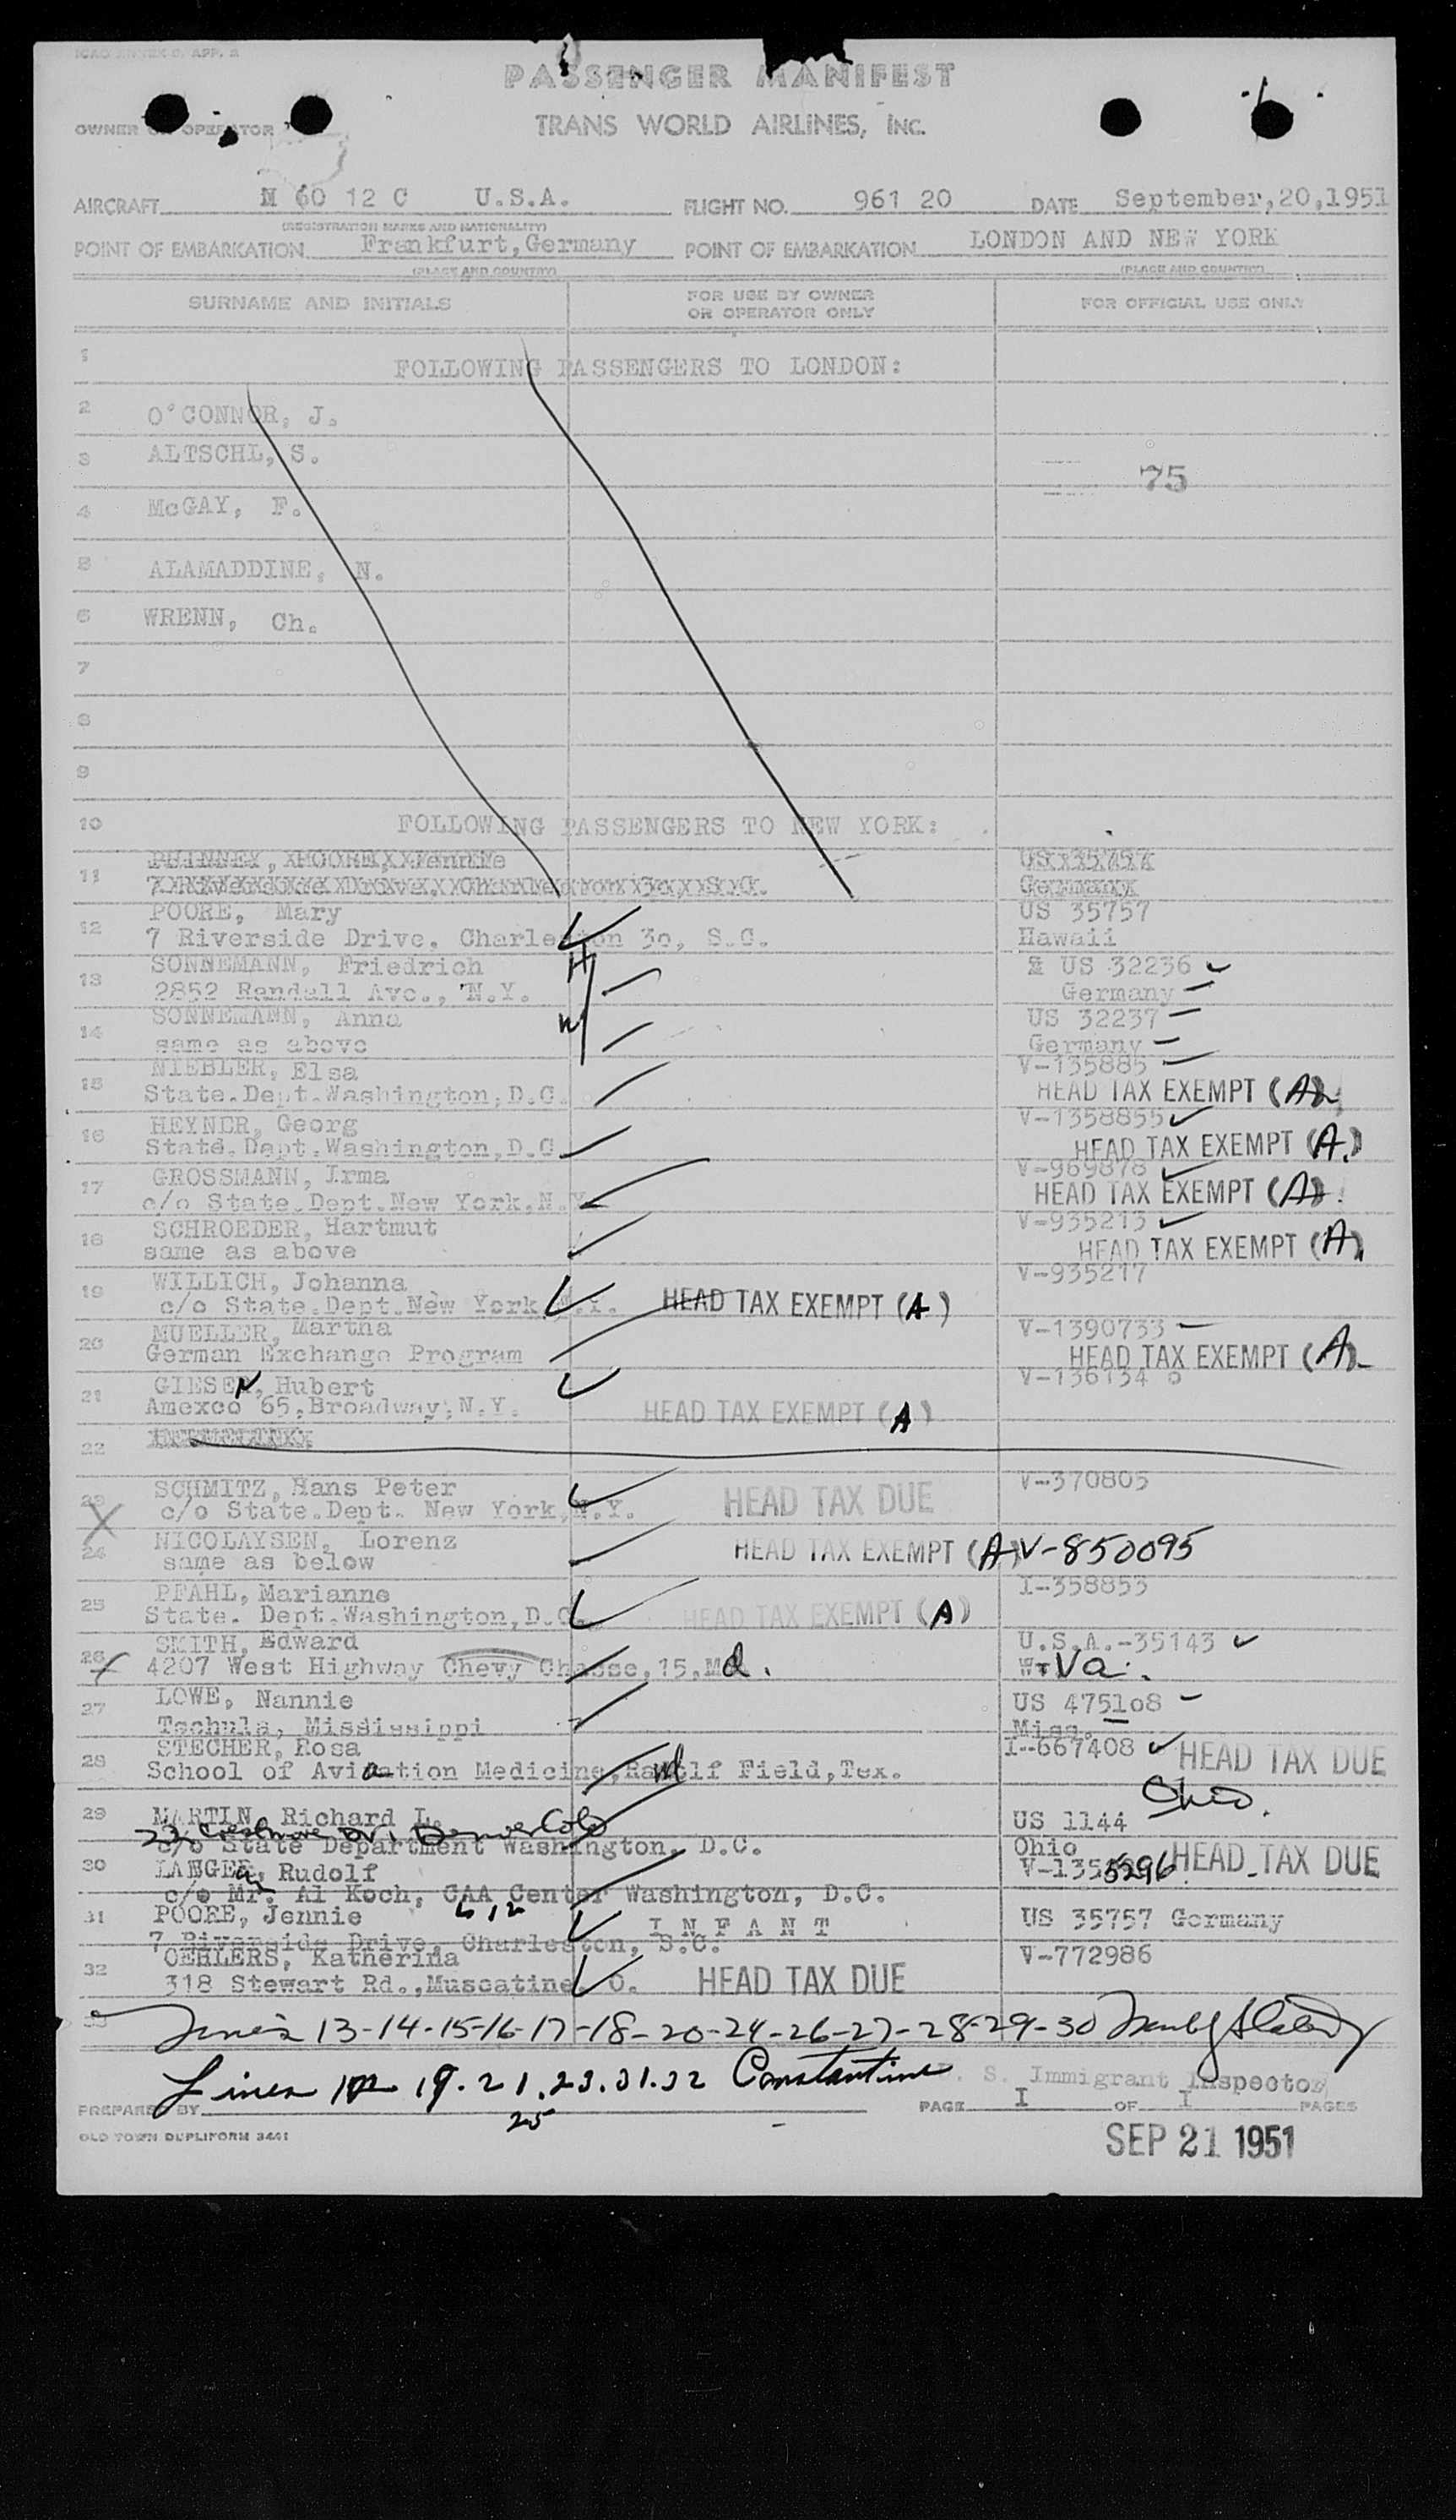 ICAO ANNEX 9, APP. A
PASSENGER MANIFEST
OWNER OR OPERATOR
TRANS WORLD AIRLINES, INC.
AIRCRAFT N 60 12 C U.S.A. FLIGHT NO. 961 20 DATE September,20,1951
(REGISTRATION MARKS AND NATIONALITY)
POINT OF EMBARKATION Frankfurt,Germany POINT OF EMBARKATION LONDON AND NEW YORK
(PLACE AND COUNTRY) (PLACE AND COUNTRY)
SURNAME AND INITIALS FOR USE BY OWNER OR OPERATOR ONLY FOR OFFICIAL USE ONLY
1 FOLLOWING PASSENGERS TO LONDON:
2 O'CONNOR, J.
3 ALTSCHL, S. 75
4 McGAY, F.
5 ALAMADDINE, N.
6 WRENN, Ch.
7
8
9
10 FOLLOWING PASSENGERS TO NEW YORK:
11 Germany
12 POORE, Mary US 35757
7 Riverside Drive, Charleston 30, S.C. Hawaii
13 SONNEMANN, Friedrich H US 32236
2852 Randall Ave., N.Y. Germany
14 SONNEMANN, Anna W US 32237
same as above Germany
15 NIEBLER, Elsa V-135885
State.Dept.Washington,D.C. HEAD TAX EXEMPT (A)
16 HEYNER, Georg V-1358855
State.Dept.Washington,D.C HEAD TAX EXEMPT (A)
17 GROSSMANN, Irma V-969878
c/o State.Dept.New York,N.Y. HEAD TAX EXEMPT (A)
18 SCHROEDER, Hartmut V-935213
same as above HEAD TAX EXEMPT (A)
19 WILLICH, Johanna V-935217
c/o State.Dept.New York,N.Y. HEAD TAX EXEMPT (A)
20 MUELLER, Martha V-1390733
German Exchange Program HEAD TAX EXEMPT (A)
21 GIESEN, Hubert V-136134 o
Amexco 65,Broadway,N.Y. HEAD TAX EXEMPT (A)
22
23 SCHMITZ, Hans Peter HEAD TAX DUE V-370805
X c/o State.Dept. New York,N.Y.
24 NICOLAYSEN, Lorenz HEAD TAX EXEMPT (A) V-850095
same as below
25 PFAHL, Marianne I-358853
State. Dept.Washington,D.C. HEAD TAX EXEMPT (A)
26 SMITH, Edward U.S.A.-35143
4207 West Highway Chevy Chasse,15,Md. W.Va.
27 LOWE, Nannie US 475108
Tschula, Mississippi Miss.
28 STECHER, Rosa I-667408 HEAD TAX DUE
School of Aviation Medicine, Field,Tex.
29 MARTIN, Richard L. US 1144 Ohio.
Denver Colo
c/o State Department Washington, D.C. Ohio
30 LANGER, Rudolf 5296 HEAD TAX DUE
c/o Mr. Al Koch, CAA Center Washington, D.C.
31 POORE, Jennie INFANT US 35757 Germany
7 Riverside Drive, Charleston, S.C.
32 OEHLERS, Katherina V-772986
318 Stewart Rd.,Muscatine, O. HEAD TAX DUE
33 Lines 13-14-15-16-17-18-20-24-26-27-28-29-30
Lines 12 19.21.23.31.32 Constantine U. S. Immigrant Inspector
25
PREPARED BY PAGE I OF I PAGES
OLD TOWN DUPLIFORM 3441
SEP 21 1951